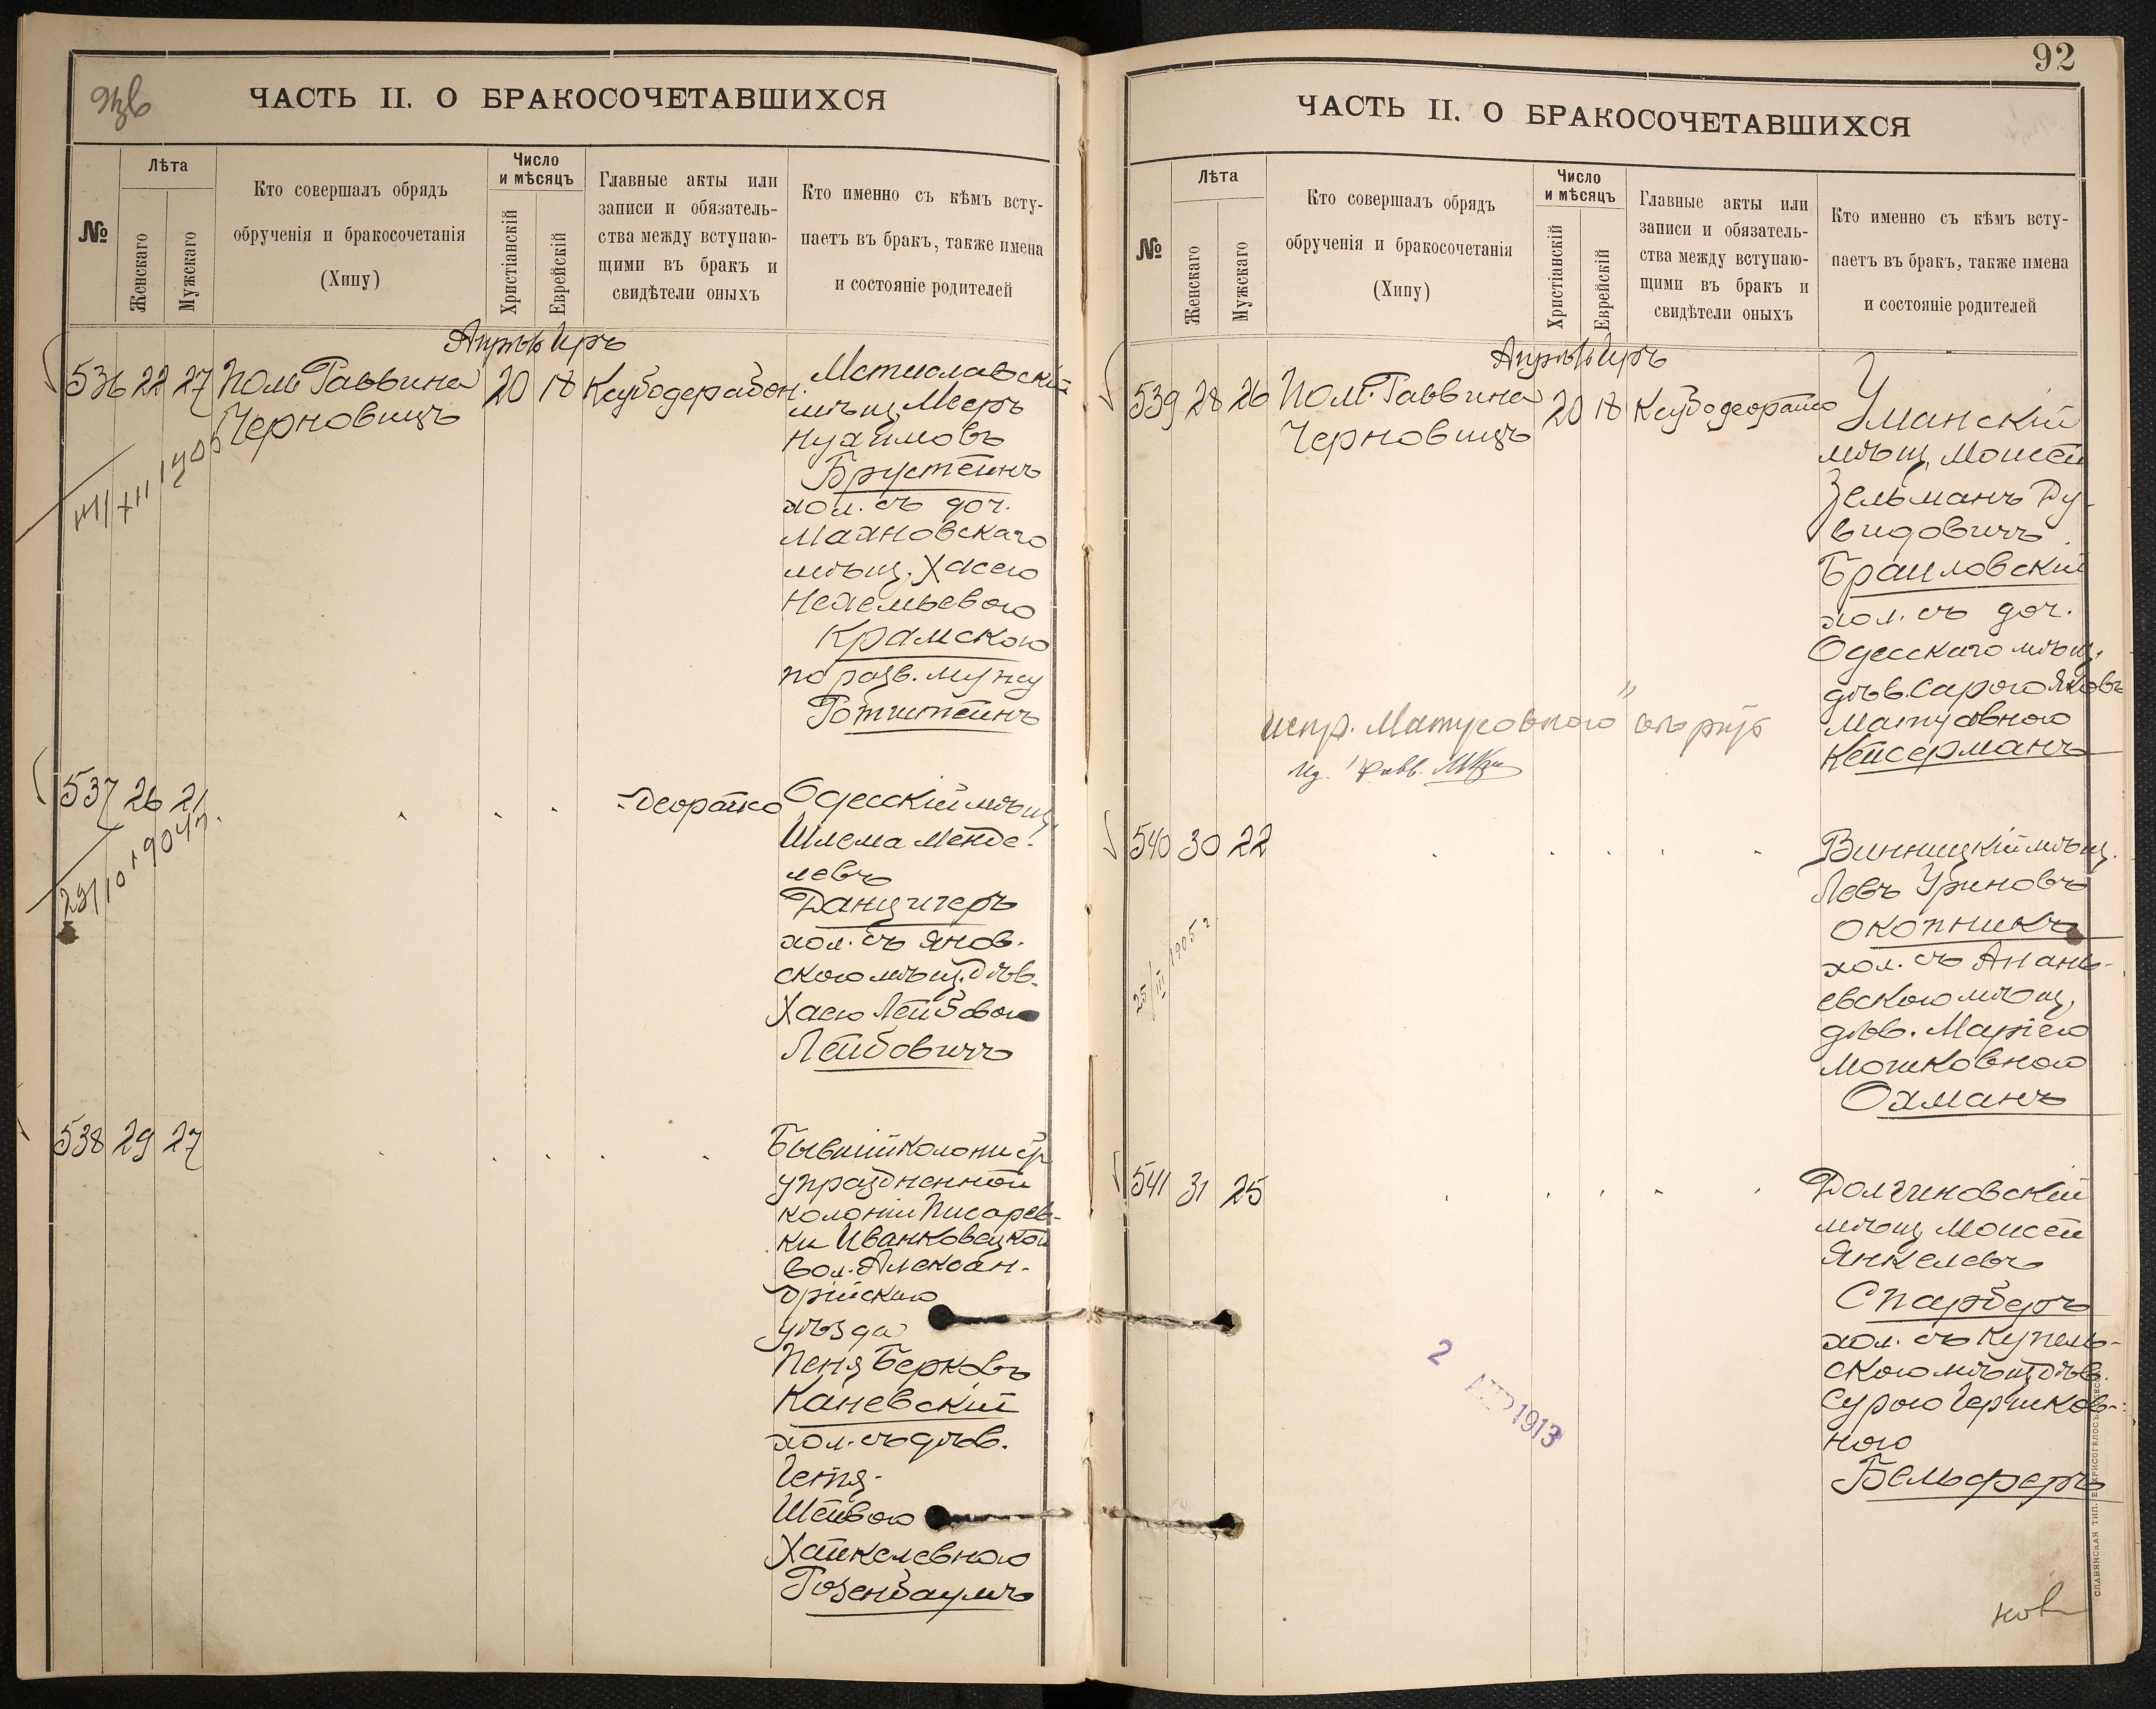 ЧАСТЬ II. О БРАКОСОЧЕТАВШИХСЯ
№
Лѣта
Женскаго
Мужскаго
Кто совершалъ обрядъ
обрученія и бракосочетанія
(Хипу)
Число
и мѣсяцъ
Христіанскій
Еврейскій
Главные акты или
записи и обязатель-
ства между вступаю-
щими въ бракъ и
свидѣтели оныхъ
Кто именно съ кѣмъ всту-
паетъ въ бракъ, также имена
и состояніе родителей
Апрѣль Иръ
536 22 27 Пом. Раввина 20 18
Черновицъ
Мстиславскій
мѣщ. Мееръ
Нухимовъ
Брустейнъ
хол. съ доч.
Махновскаго
мѣщ. Хасею
Крамскою
по разв. мужу
Ротштейнъ
537 26 21
29/10 1904 г.
Одесскій мѣщ.
Шлема Менде-
левъ
Данцигеръ
хол. съ Янов-
скою мѣщ. дѣв.
Хаею Лейбовою
Лейбовичъ
538 29 27
Бывшій колонистъ
упраздненной
колоніи Писарев-
ки Иванковецкой
вол. Александ-
рійскаго
уѣзда
Беня Берковъ
Каневскій
хол. съ дѣв.
Гетя-
Шейвою
Хайкелевною
Розенбаумъ
92
ЧАСТЬ II. О БРАКОСОЧЕТАВШИХСЯ
№
Лѣта
Женскаго
Мужскаго
Кто совершалъ обрядъ
обрученія и бракосочетанія
(Хипу)
Число
и мѣсяцъ
Христіанскій
Еврейскій
Главные акты или
записи и обязатель-
ства между вступаю-
щими въ бракъ и
свидѣтели оныхъ
Кто именно съ кѣмъ всту-
паетъ въ бракъ, также имена
и состояніе родителей
Апрѣль Иръ
539 28 26 Пом. Раввина 20 18
Черновицъ
Уманскій
мѣщ. Моисей
Зельманъ Ду-
видовичъ
Браиловскій
хол. съ доч.
Одесскаго мѣщ.
дѣв. Сарою Яковъ
Матусовною
Кейсерманъ
испр. "Матусовною"
540 30 22
25/III 1905 г
Винницкій мѣщ.
Левъ Уриновъ
Окопникъ
хол. съ Анань-
евскою мѣщ.
дѣв. Маріею
Мошковною
Охманъ
541 31 25
Долгиновскій
мѣщ. Моисей
Янкелевъ
Спарберъ
хол. съ Купель-
скою мѣщ. дѣв.
Сурою Гершков-
ною
Бельферъ
2 АПР 1913